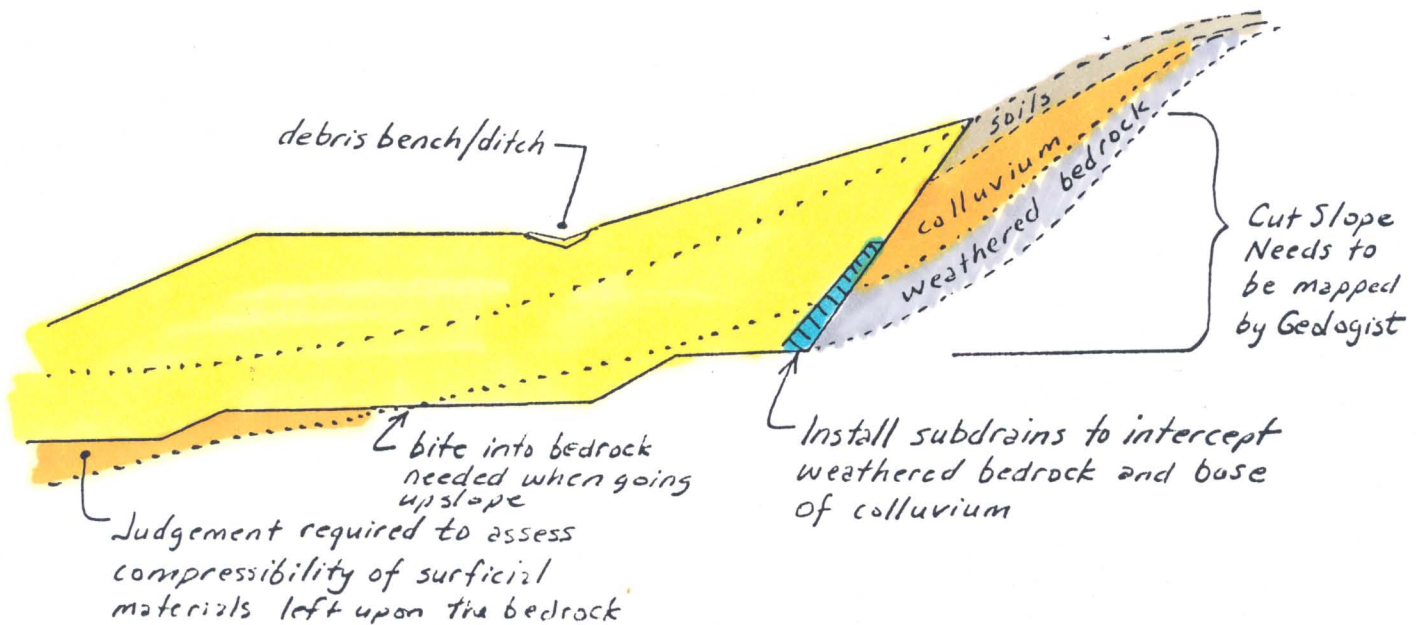 debris bench/ditch
soils
colluvium
weathered bedrock
Cut Slope
Needs to
be mapped
by Geologist
bite into bedrock
needed when going
upslope
Install subdrains to intercept
weathered bedrock and base
of colluvium
Judgement required to assess
compressibility of surficial
materials left upon the bedrock